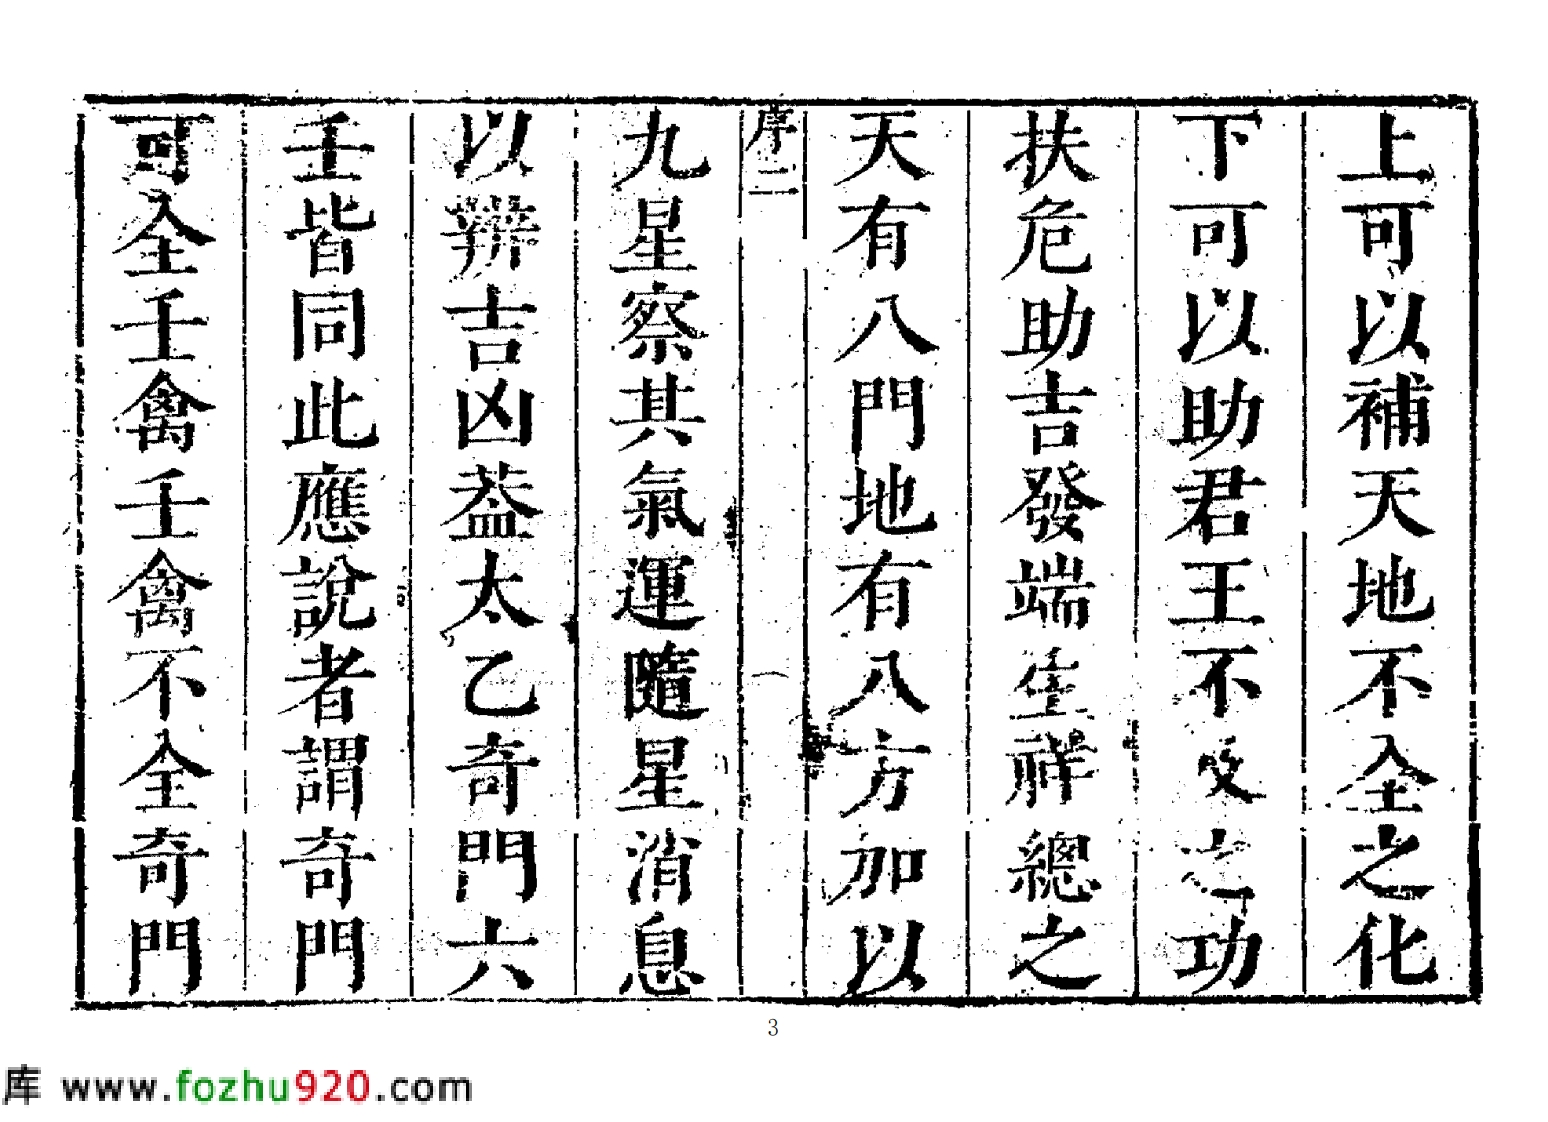 上可以補天地不全之化
下可以助君王不及之功
扶危助吉發端生祥總之
天有八門地有八方加以
序 二
九星察其氣運隨星消息
以辨吉凶葢太乙奇門六
壬皆同此應說者謂奇門
可全壬禽壬禽不全奇門
3
库 www.fozhu920.com